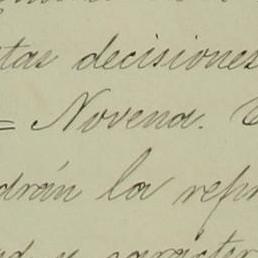 tas decisiones
= Novena.
drán la repr
y carácter